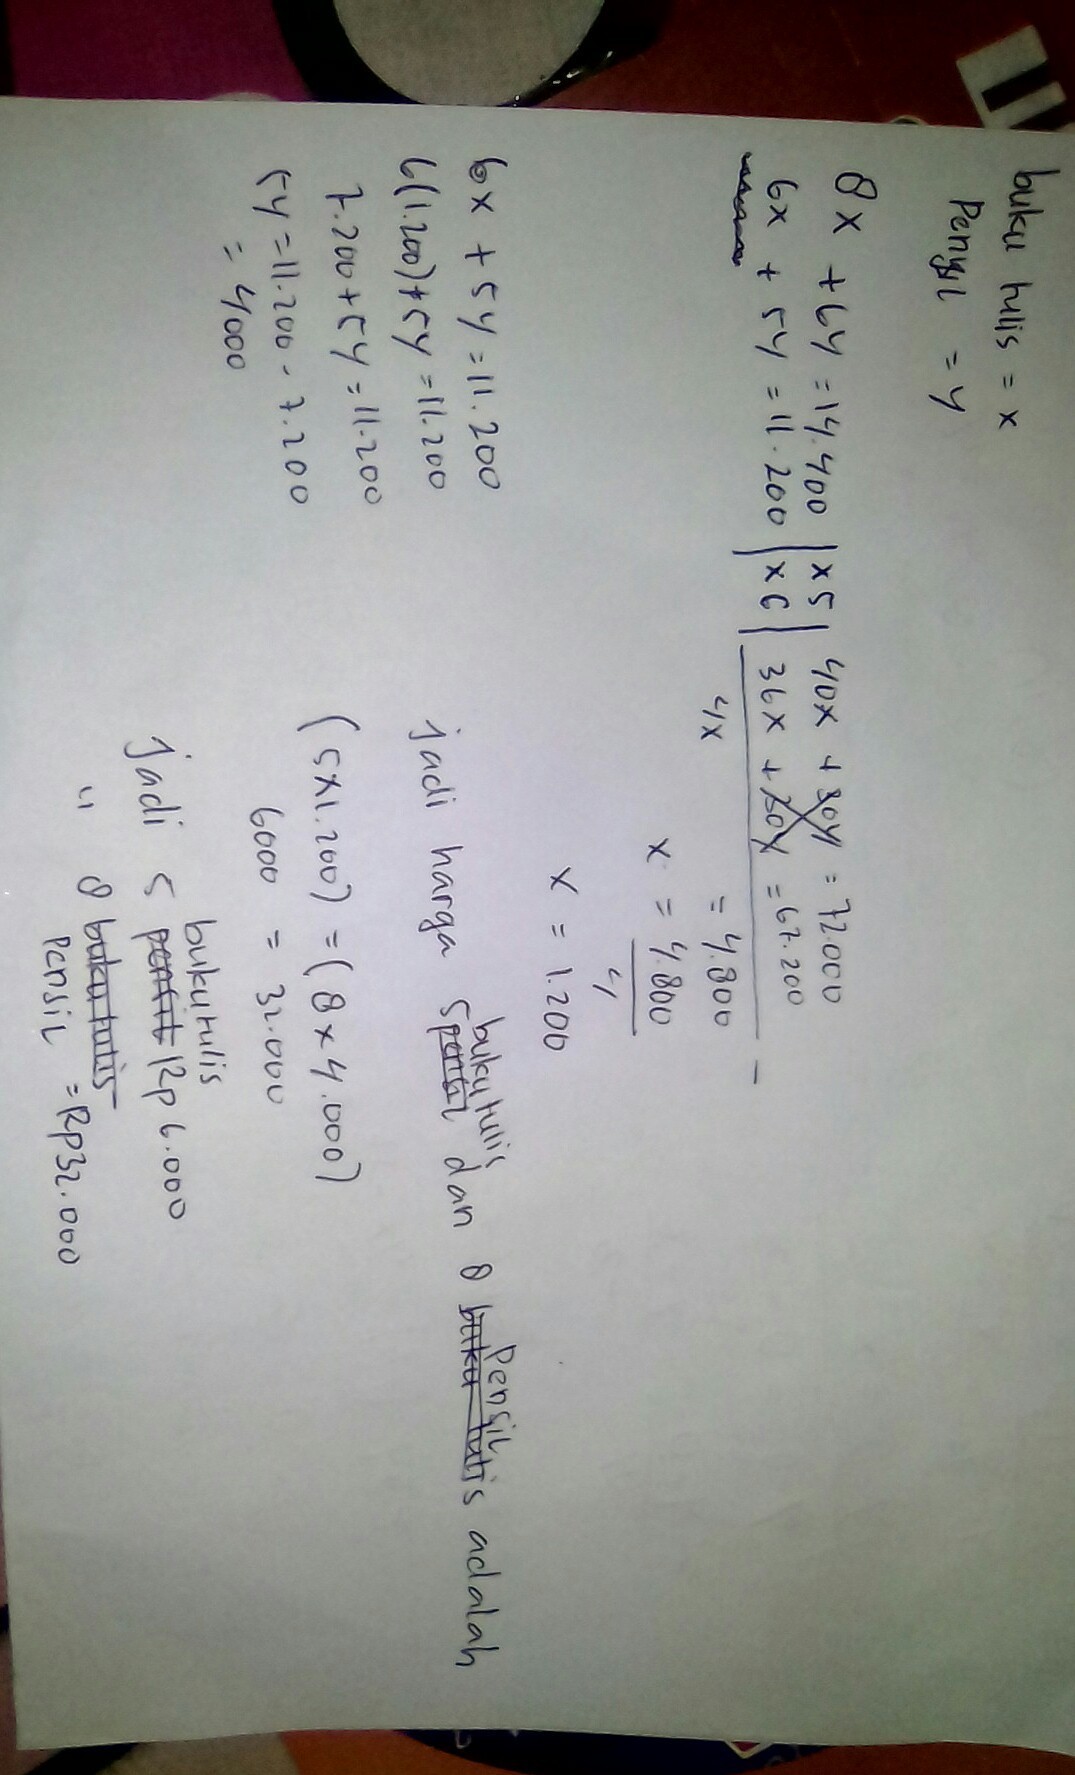 buku tulis = x
Pensil = y
8x + 6y = 14.400 | x5 | 40x + 30y = 72.000
6x + 5y = 11.200 | x6 | 36x + 30y = 67.200 -
4x = 4.800
x = 4.800
4
x = 1.200
6x + 5y = 11.200
6(1.200) + 5y = 11.200
7.200 + 5y = 11.200
5y = 11.200 - 7.200
= 4000
bukutulis Pensil
jadi harga 5 pensil dan 8 buku tulis adalah
(5x1.200) = (8 x 4.000)
6000 = 32.000
bukutulis
jadi 5 pensil Rp 6.000
" 8 buku tulis
Pensil = Rp32.000